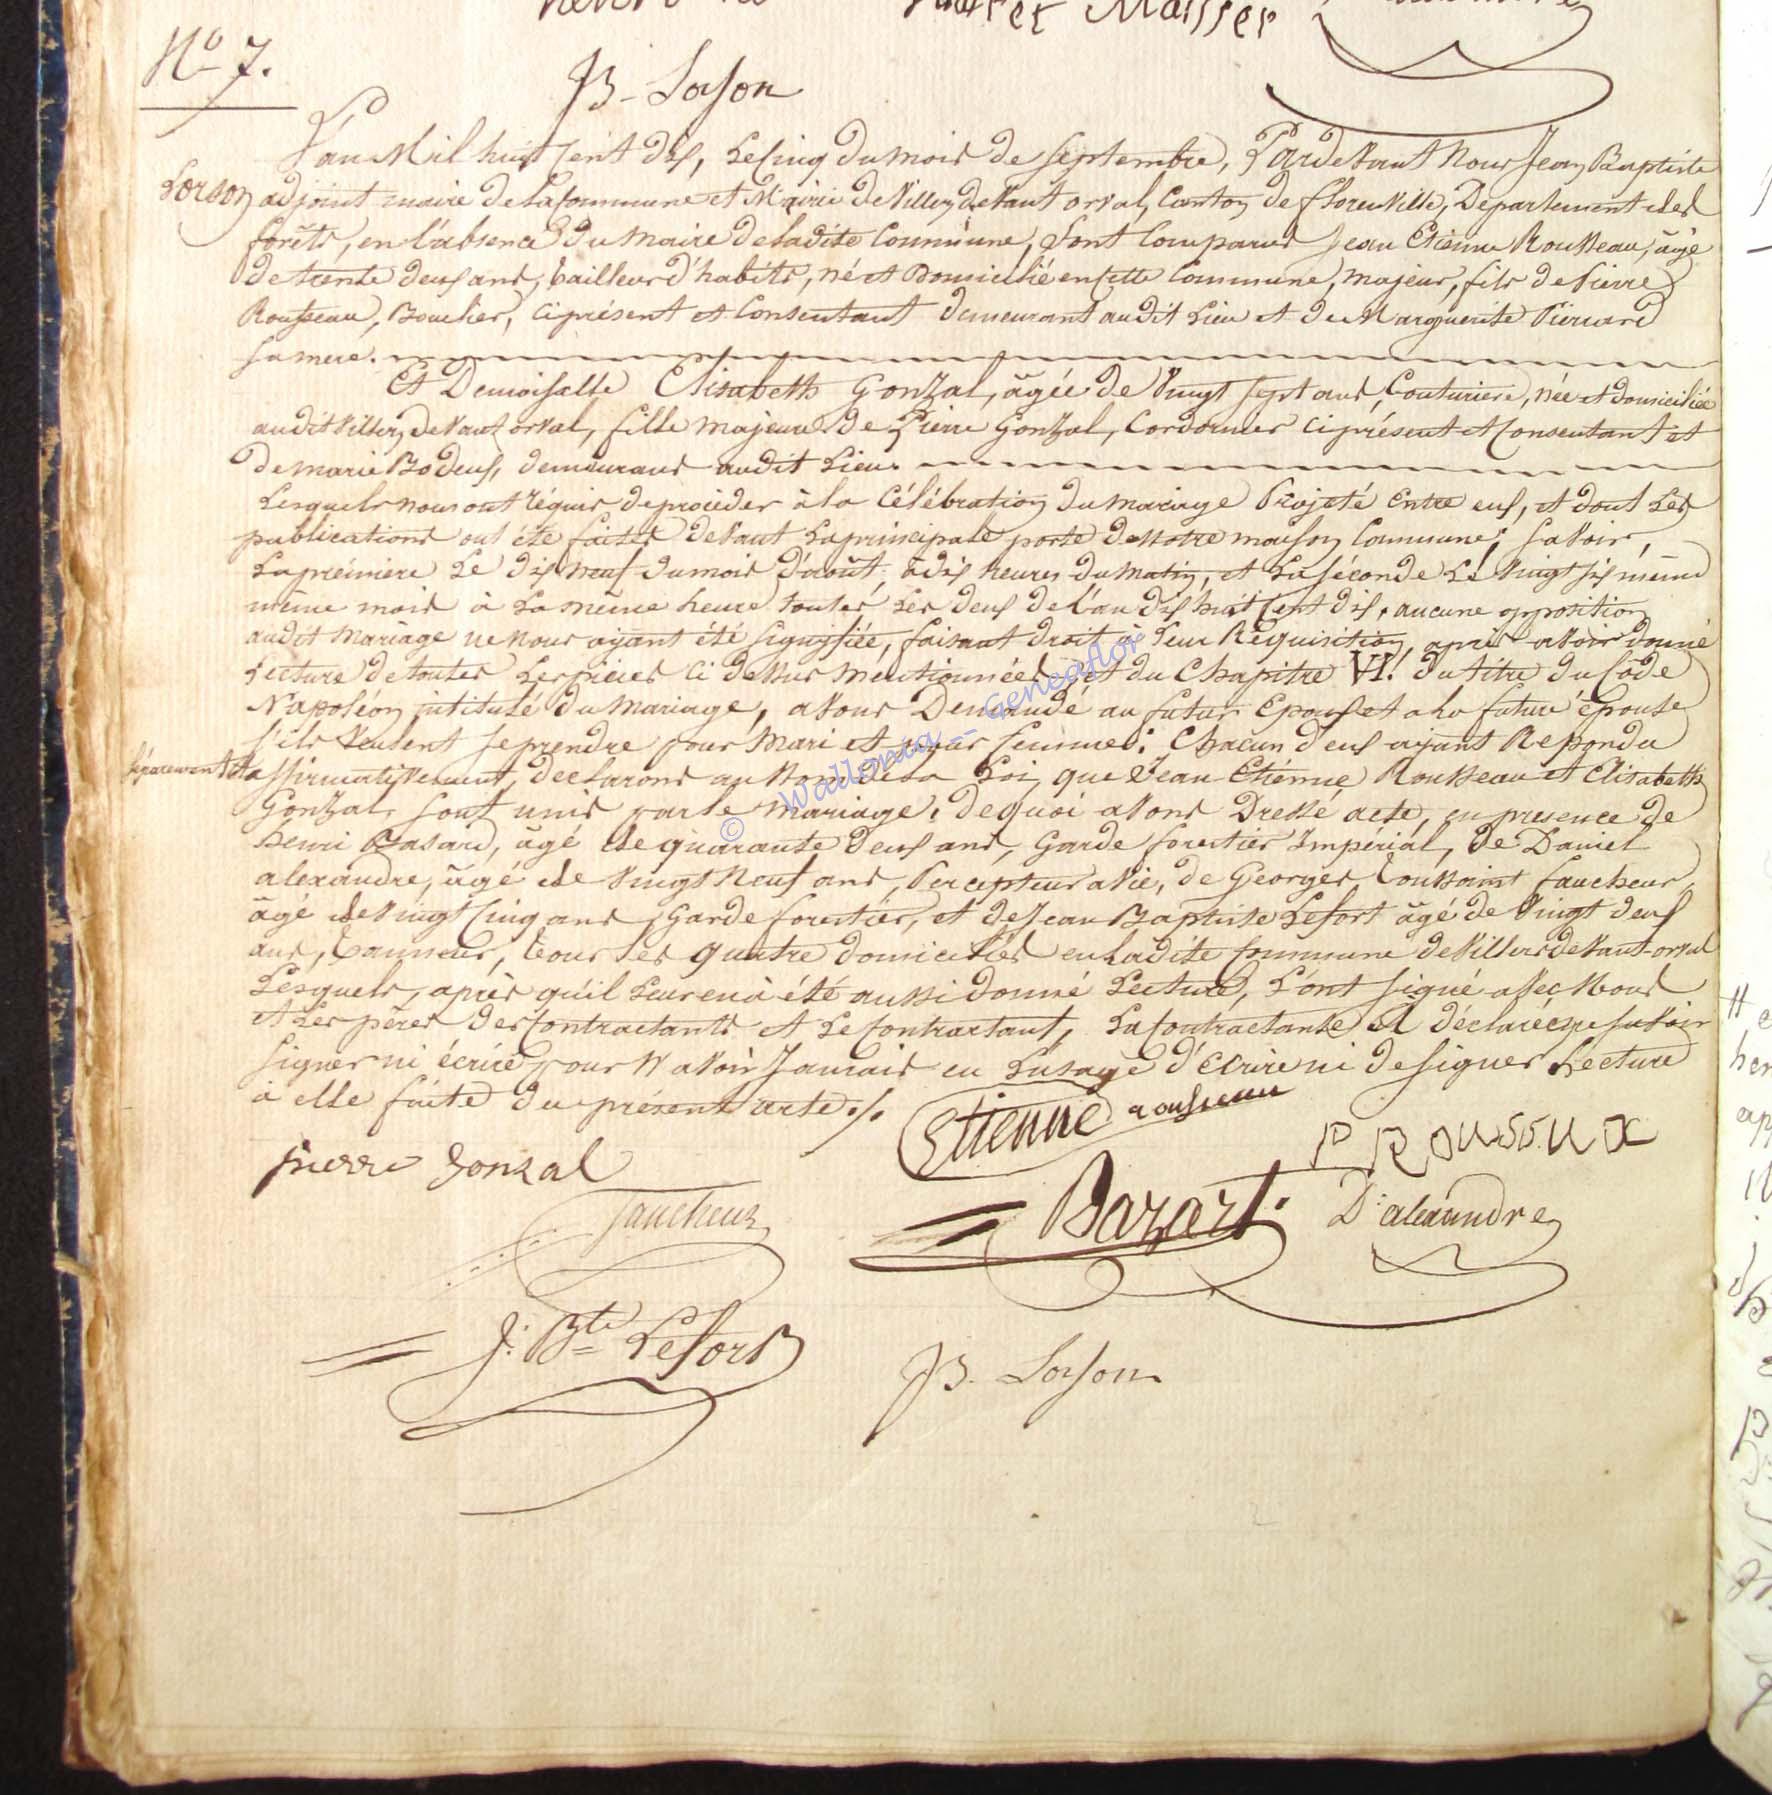 et Maisser
N.o 7.
JB - Lorson
L'an Mil huit Cent dix, Le Cinq du mois de Septembre, Pardevant Nous Jean Baptiste
Lorson adjoint maire de La Commune et Mairie de Villers devant orval, Canton de florenville, Departement des
forêts, en L'absence du maire de Ladite Commune, Sont Comparus Jean Etienne Rousseau, âgé
de trente deux ans, tailleur d'habits, né et Domicilié en Cette Commune, majeur, fils de Pierre
Rousseau, Boucher, ci présent et Consentant demeurant audit Lieu et de Marguerite Pierrard
Sa mere.
Et Demoiselle Elisabeth Gonzal, âgée de Vingt Sept ans, Couturiere, née et domiciliée
audit Villers devant orval, fille majeure de Pierre Gonzal, Cordonnier ci présent et Consentant et
de marie Bodeux, demeurans audit Lieu.
Lesquels nous ont réquis de procéder à la Célébration du mariage Projeté Entre eux, et dont Les
publications ont été faites devant La principale porte de Notre maison Commune; Savoir,
La prémiere Le dix neuf du mois d'août, à dix heures du matin, et La séconde Le Vingt six même
même mois à La même heure toutes Les deux de L'an dix huit Cent dix, aucune opposition
audit mariage ne Nous ayant été Signifiée, faisant droit à Leur Réquisition, après avoir donné
Lecture de toutes Les pièces Ci dessus mentionnées, et du Chapitre VI! du titre du Côde
Napoléon intitulé du Mariage, avons Demandé au futur Epoux et a La future épouse
S'ils Veulent Se prendre pour Mari et pour femme: Chacun d'eux ayant Répondu
Séparement et affirmativement, declarons au Nom de La Loi, que Jean Etiénne Rousseau et Elisabeth
Gonzal, sont unis par le mariage. de quoi avons Dressé acte, en presence de
henri Basard, âgé de quarante deux ans, Garde forestier Impérial, de Daniel
alexandre, âgé de Vingt Neuf ans, Percepteur a Vie, de Georges toussaint faucheur
âgé de Vingt Cinq ans, Garde forestier, et de Jean Baptiste Lefort âgé de Vingt deux
ans, tanneur, tous Les quatre domiciliés en Ladite Commune de Villers devant-orval
Lesquels, après qu'il Leur en a été aussi donné Lecture, L'ont Signé avec Nous
et Les pères des Contractants et Le Contractant, La Contractante a déclaré ne Savoir
Signer ni écrire pour N'avoir Jamais eu L'usage d'écrire ni de Signer Lecture
à elle faite du présent acte ./.
Etienne rousseau
pierre Gonzal
P ROUSSUX
faucheur
Bazart.
D: alexandre
J: Bte Lefort
JB. Lorson
© Wallonia -- Geneaflor